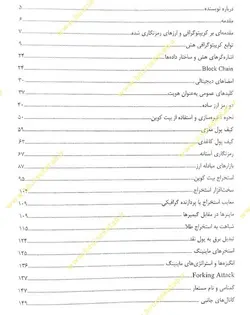 درباره نویسنده ۵
مقدمه ۶
مقدمه‌ای بر کریپتوگرافی و ارزهای رمزنگاری شده ۷
توابع کریپتوگرافی هش ۹
اشاره‌گرهای هش و ساختار داده‌ها ۲۴
Block Chain ۲۴
امضاهای دیجیتالی ۳۰
کلیدهای عمومی به‌عنوان هویت ۳۷
دو رمز ارز ساده ۴۰
نحوه ذخیره‌سازی و استفاده از بیت کوین ۵۰
کیف پول مغزی ۵۹
کیف پول کاغذی ۶۲
رمزنگاری آستانه ۶۷
بازارهای مبادله ارز ۸۷
استخراج بیت کوین ۹۵
سخت‌افزار استخراج ۱۰۲
معایب استخراج با پردازنده گرافیکی ۱۰۹
ماینرها در مقابل گیمرها ۱۰۹
شباهت به استخراج طلا ۱۱۵
تبدیل برق به پول نقد ۱۲۰
استخرهای ماینینگ ۱۲۵
انگیزه‌ها و استراتژی‌های ماینینگ ۱۳۶
Forking Attack ۱۳۷
گمنامی و نام مستعار ۱۴۷
کانال‌های جانبی ۱۴۹